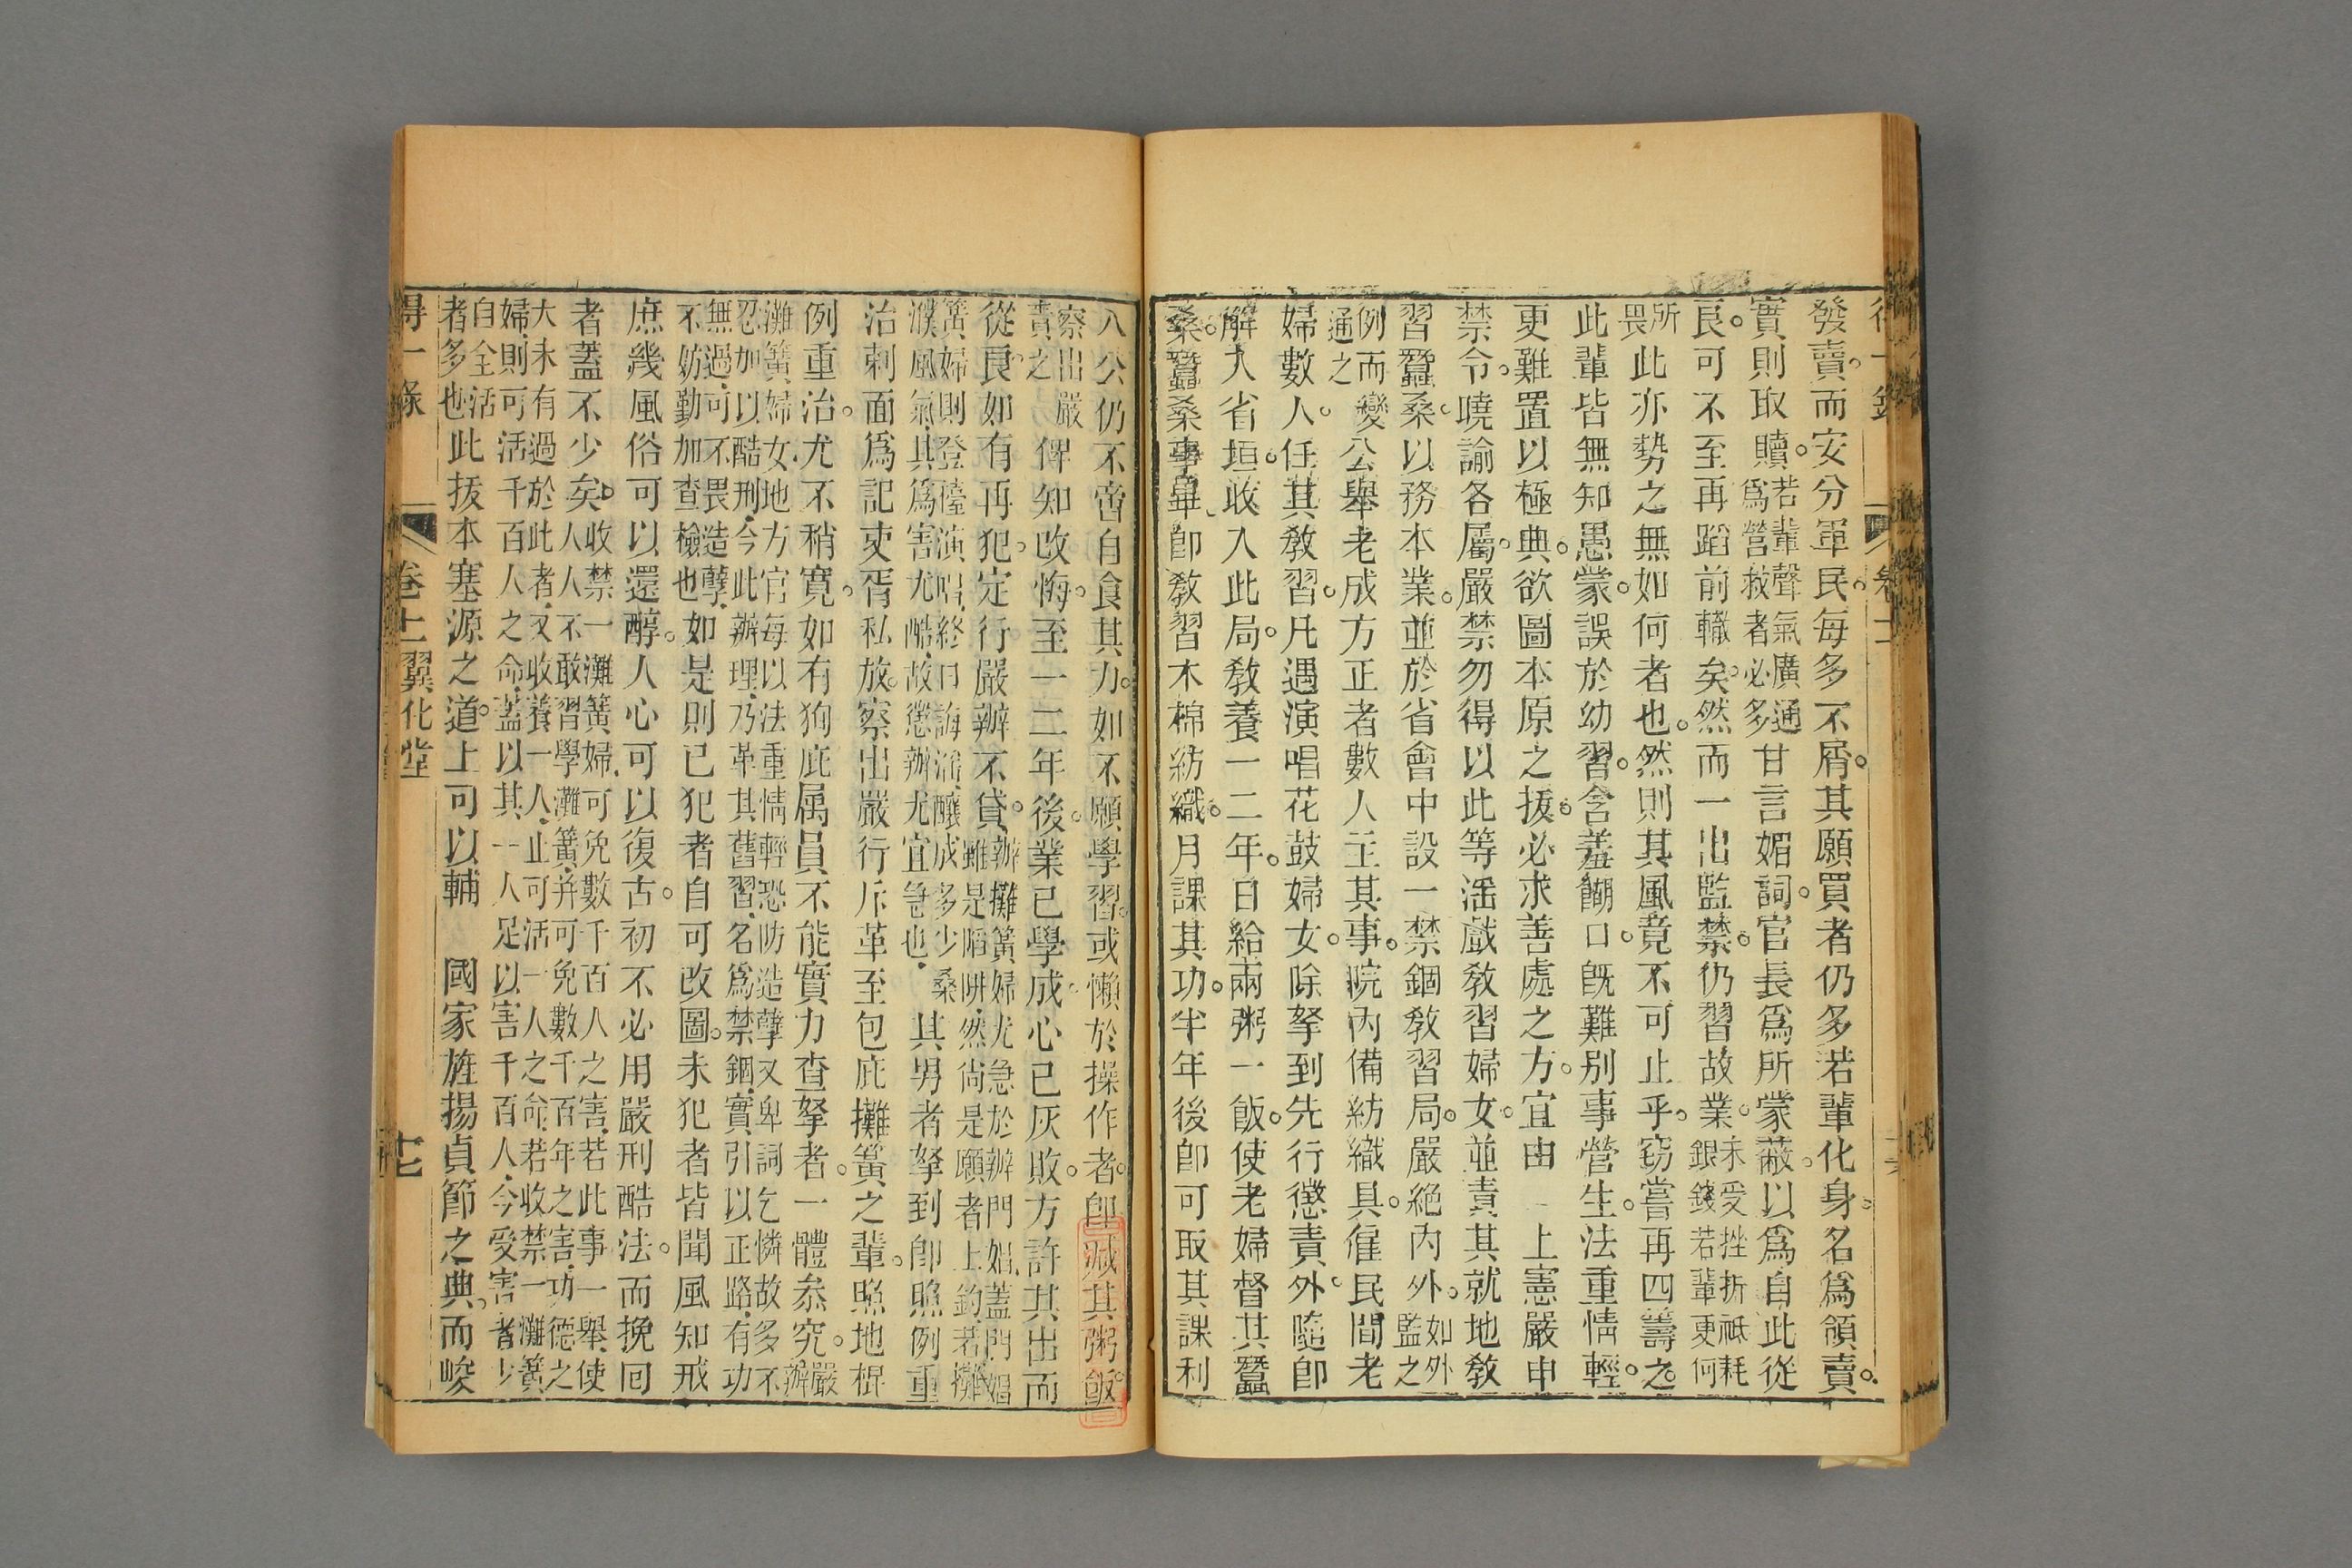 發賣。而安分軍民。每多不屑。其願買者仍多若輩化身。名爲領賣。
實則取贖。若輩聲氣廣通爲營救者必多甘言媚詞。官長爲所蒙蔽。以爲自此從
良。可不至再蹈前轍矣。然而一出監禁。仍習故業。未受挫折祗耗銀錢若輩更何
所畏此亦勢之無如何者也。然則其風竟不可止乎。窃嘗再四籌之。
此輩皆無知愚蒙。誤於幼習。含羞餬口。旣難别事營生。法重情輕。
更難置以極典。欲圖本原之拔。必求善處之方。宜由 上憲嚴申
禁令。曉諭各屬。嚴禁勿得以此等滛戲敎習婦女。並責其就地敎
習蠶桑。以務本業。並於省會中設一禁錮敎習局。嚴絶內外。如外監之
例而通之變公舉老成方正者數人主其事。院內備紡織具。僱民間老
婦數人。任其敎習。凡遇演唱花鼓婦女。除拏到先行懲責外。隨卽
解入省垣。收入此局。敎養一二年。日給兩粥一飯。使老婦督其蠶
桑。蠶桑事畢。卽敎習木棉紡織。月課其功。半年後卽可取其課利
入公仍不啻自食其力。如不願學習。或懶於操作者。卽減其粥飯。
察出嚴責之俾知改悔。至一二年後。業已學成。心已灰敗。方許其出而
從良。如有再犯。定行嚴辦不貸。辦攤簧婦尤急於辦門娼蓋門娼雖是陷阱然尙是願者上鈎若攤
簧婦則登檯演唱終日誨滛釀成多少桑濮風氣其爲害尤酷故懲辦尤宜急也其男者拏到卽照例重
治刺面爲記吏胥私放。察出嚴行斥革至包庇攤簧之輩。照地棍
例重治。尤不稍寛。如有狥庇属員不能實力查拏者。一體叅究。嚴辦
灘簧婦女地方官每以法重情輕恐防造孽又卑詞乞憐故多不忍加以酷刑今此辦理乃革其舊習名爲禁錮實引以正路有功
無過可不畏造孽不妨勤加查檢也如是則已犯者自可改圖。未犯者皆聞風知戒
庶幾風俗可以還醇。人心可以復古。初不必用嚴刑酷法。而挽囘
者蓋不少矣。收禁一灘簧婦可免數千百人之害若此事一舉使人人不敢習學灘簧并可免數千百年之害功德之
大未有過於此者又收養一人止可活一人之命若收禁一灘簧婦則可活千百人之命蓋以其一人足以害千百人今受害者少
自全活者多也此拔本塞源之道。上可以輔 國家旌揚貞節之典。而峻
得一錄 卷十一翼化堂 十七